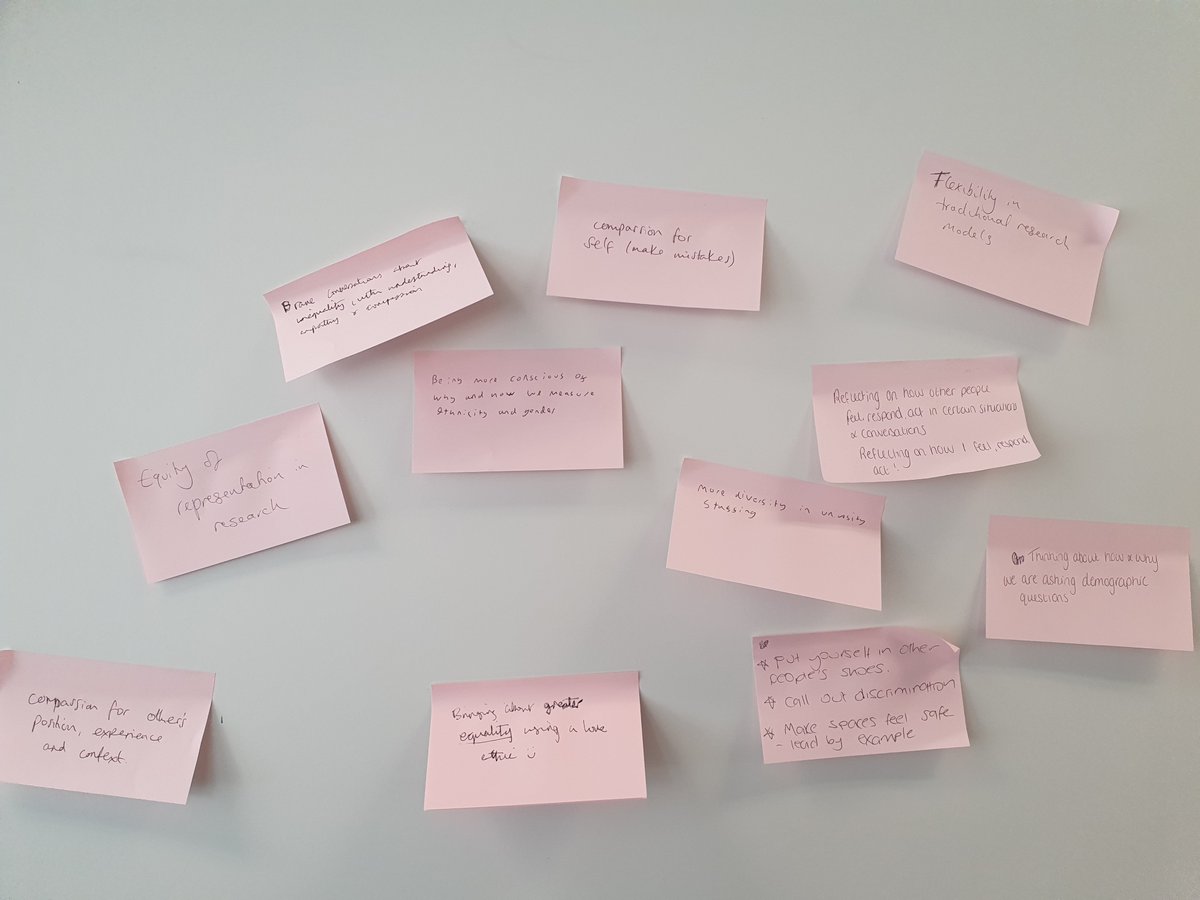 Brave conversations about
inequality, with understanding,
empathy & compassion
compassion for
self (make mistakes)
Flexibility in
traditional research
models
Being more conscious of
why and how we measure
ethnicity and gender
Reflecting on how other people
feel, respond, act in certain situations
& conversations
Reflecting on how I feel, respond
act!
Equity of
representation in
research
More diversity in
staffing
Thinking about how & why
we are asking demographic
questions
compassion for other's
position, experience
and context.
Bringing about greater
equality using a love
ethic
* Put yourself in other
people's shoes.
* Call out discrimination
* Make spaces feel safe
- lead by example